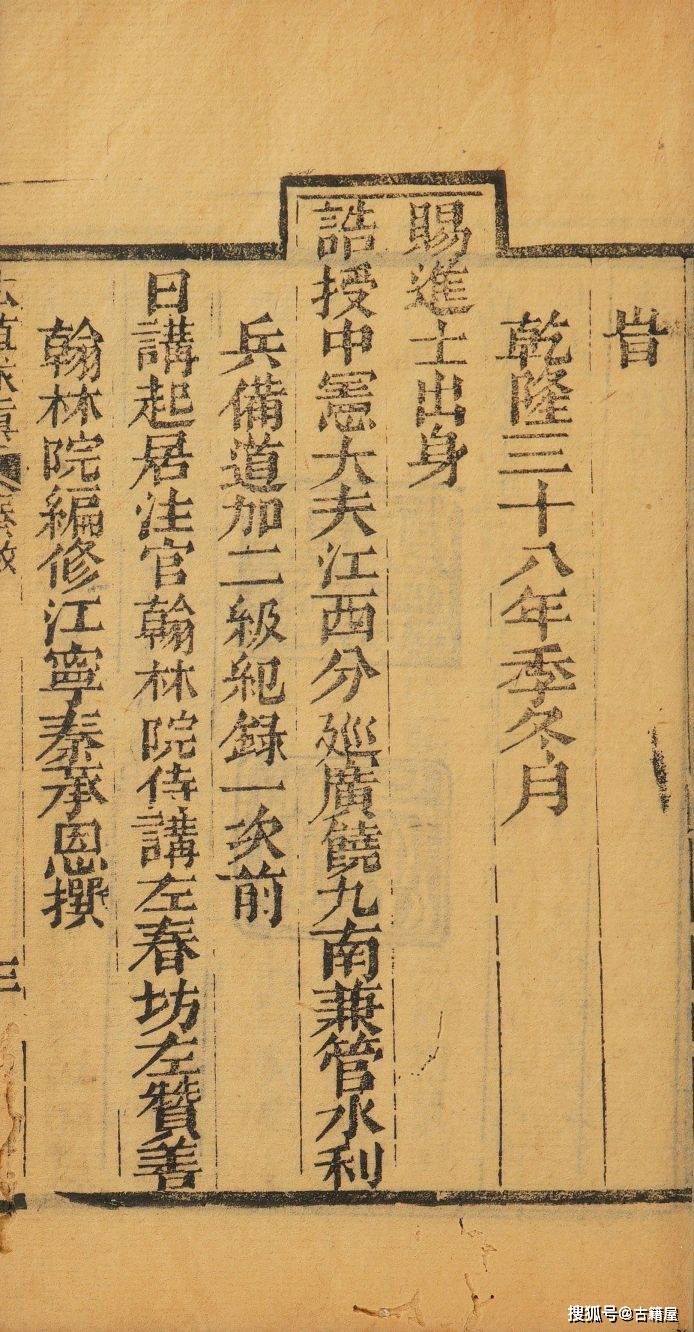 旹
乾隆三十八年季冬月
賜進士出身
誥授中憲大夫江西分廵廣饒九南兼管水利
兵備道加二級紀錄一次前
日講起居注官翰林院侍講左春坊左贊善
翰林院編修江寧秦承恩撰
三
搜狐号@古籍屋